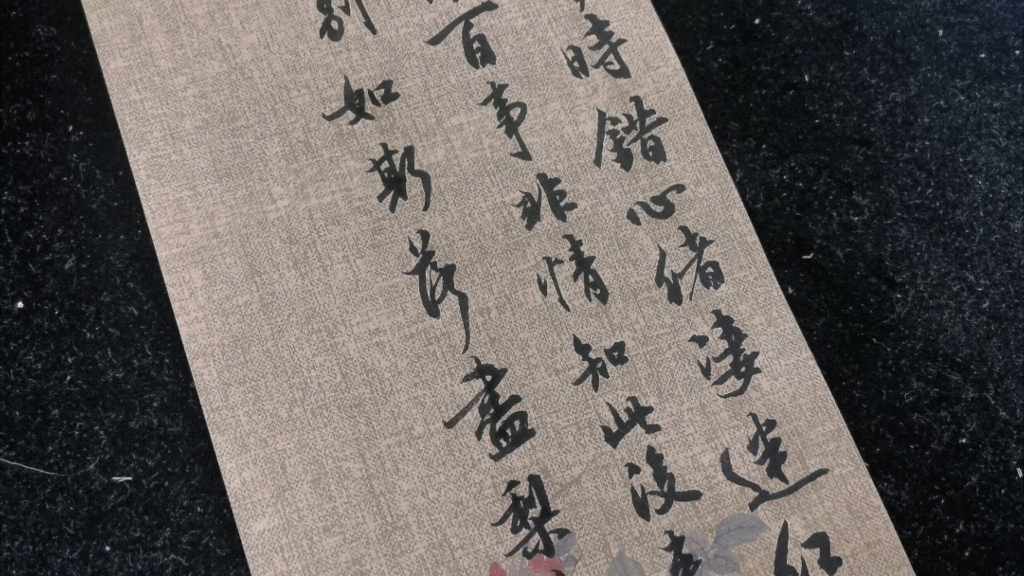 時錯心緒淒迷紅
百事非情知此後來
別如斯落盡梨